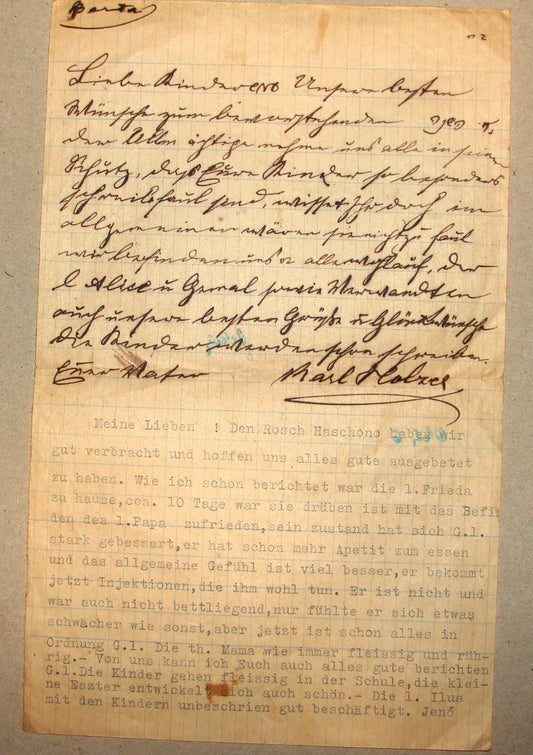 Berta
Liebe Kinder Unsere besten
Wünsche zum bevorstehenden
der Allmächtige nehme uns alle in seinen
Schutz, dass Eure Kinder so besonders
schreibfaul sind, wisset Ihr doch im
allgemeinen wären sie nicht zu faul
wir befinden uns alle wohlauf, der
l Alice u Gemal sowie Verwandten
auch unsere besten Grüße u Glückwünsche
die Kinder werden schon schreiben.
Euer Vater Karl Holzer
Meine Lieben ! Den Rosch Haschono haben wir
gut verbracht und hoffen uns alles gute ausgebetet
zu haben. Wie ich schon berichtet war die l.Frieda
zu hause,cca. 10 Tage war sie drüben ist mit das Befin
den des l.Papa zufrieden,sein zustand hat sich G.l.
stark gebessert,er hat schon mehr Apetit zum essen
und das allgemeine Gefühl ist viel besser,er bekommt
jetzt Injektionen,die ihm wohl tun. Er ist nicht und
war auch nicht bettliegend,nur fühlte er sich etwas
schwächer wie sonst,aber jetzt ist schon alles in
Ordnung G.l. Die th. Mama wie immer fleissig und rüh-
rig.- Von uns kann ich Euch auch alles gute berichten
G.l.Die Kinder gehen fleissig in der Schule,die klei-
ne Eszter entwickelt sich auch schön.- Die l. Ilus
mit den Kindern unbeschrien gut beschäftigt. Jenö